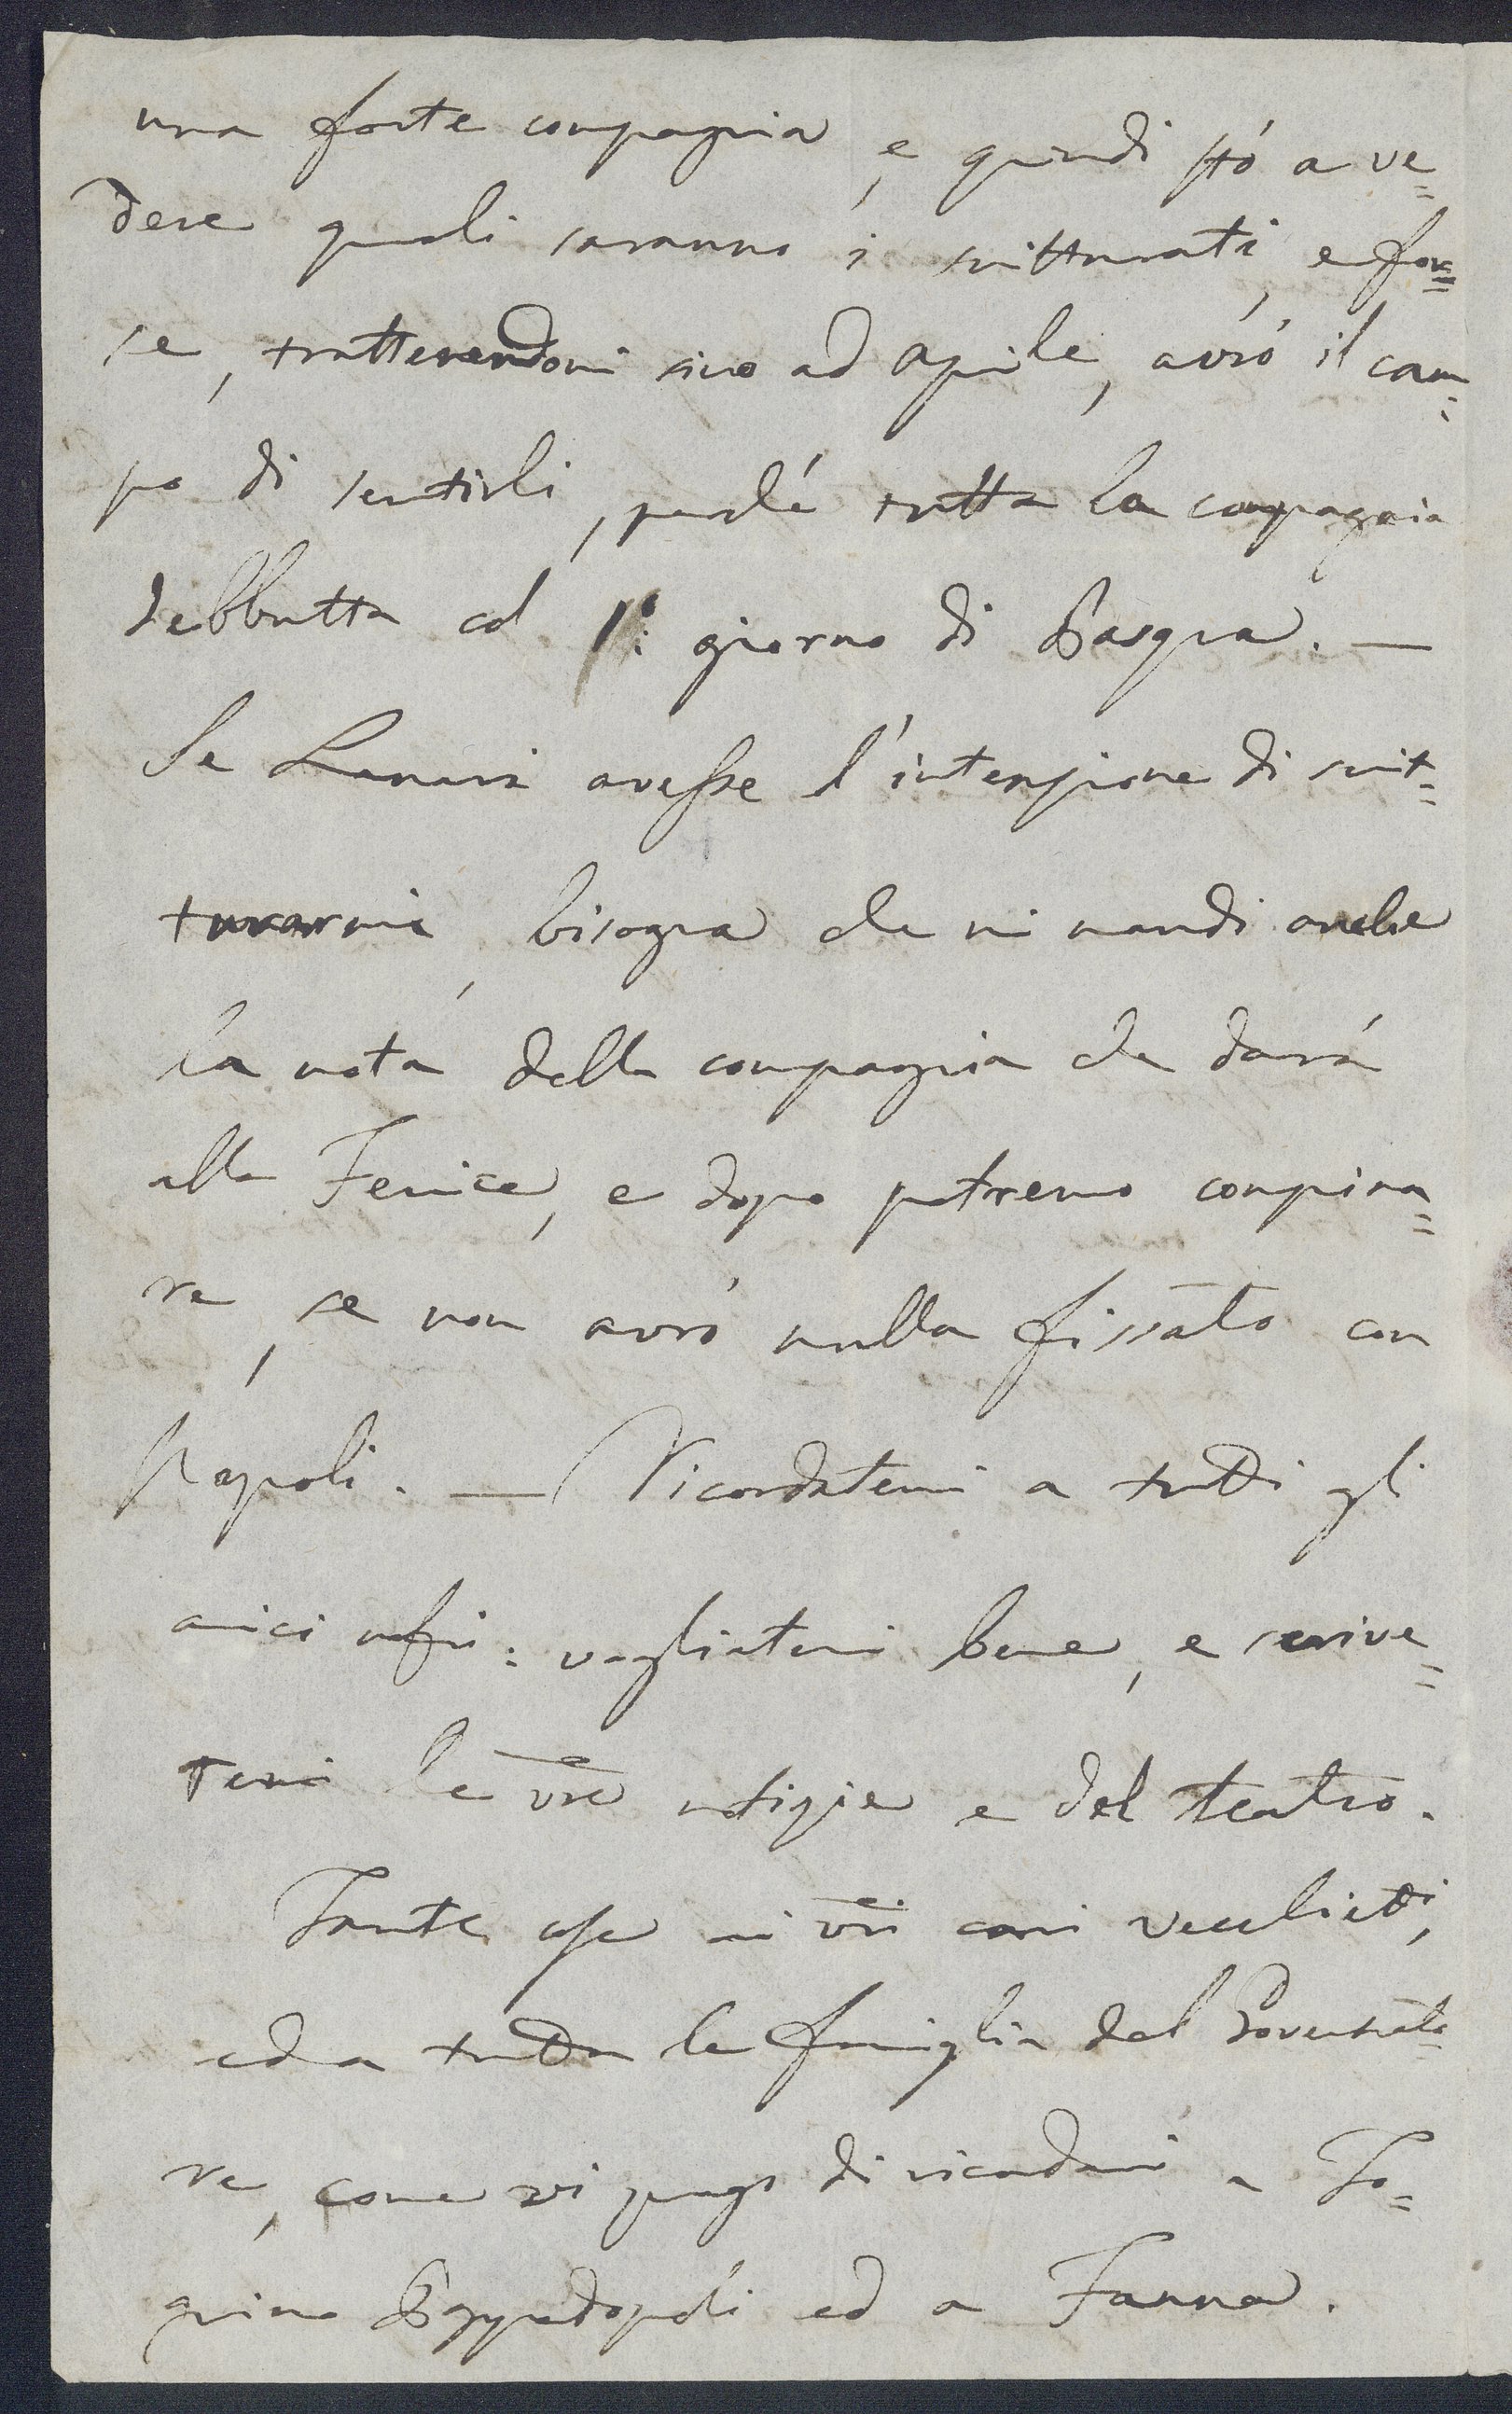 una forte compagnia, e quindi stó a ve=
dere quali saranno i scritturati, e for=
se, trattenendomi sino ad Aprile, avró il cam=
po di sentirli, perché tutta la compagnia
debbutta col 1º: giorno di Pasqua. —
Se Lanari avesse l'intenzione di scrit=
turarmi, bisogna che mi mandi anche
la nota della compagnia che dará
alla Fenice, e dopo potremo compina=
re, se non avró nulla fissato con
Napoli. — Ricordatemi a tutti gli
amici nostri: vogliatemi bene, e scrive=
temi le vre notizie e del teatro.
Tante cose ai vri cari vecchietti,
ed a tutta la famiglia del Governato=
re, come vi prego di ricordarmi a To=
gnino ed a Fanna.